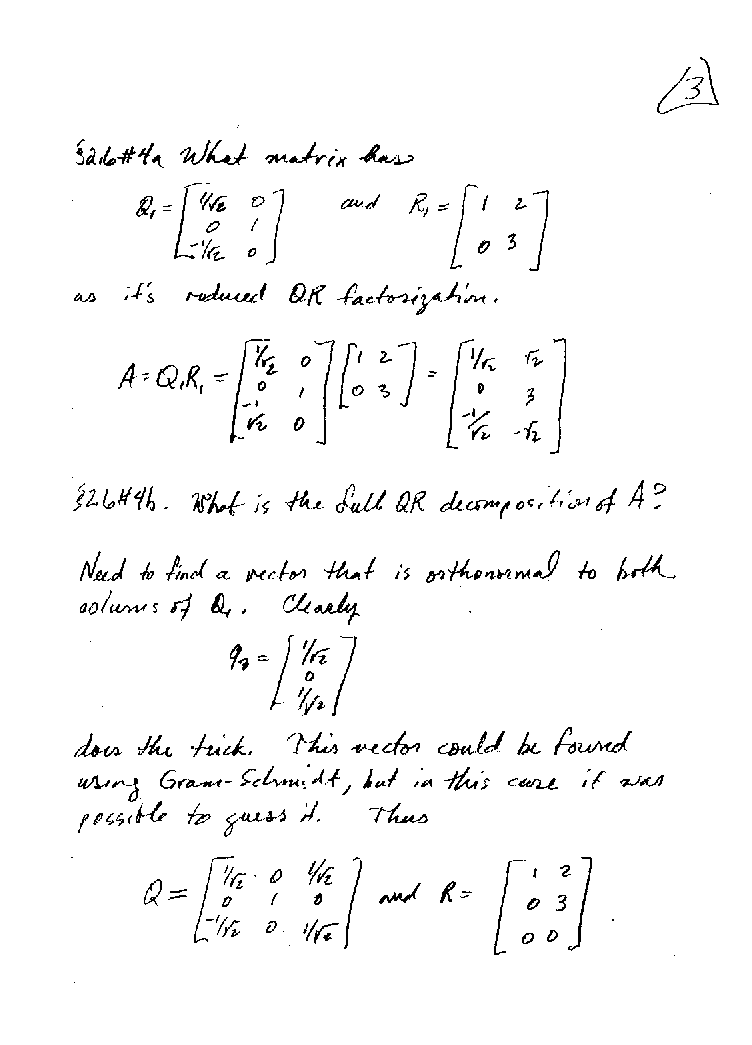 3
§2.6#4a What matrix has
Q₁ = [ 1/√2 0 ; 0 1 ; -1/√2 0 ] and R₁ = [ 1 2 ; 0 3 ]
as it's reduced QR factorization.
A = Q₁R₁ = [ 1/√2 0 ; 0 1 ; -1/√2 0 ] [ 1 2 ; 0 3 ] = [ 1/√2 √2 ; 0 3 ; -1/√2 -√2 ]
§2.6#4b. What is the full QR decomposition of A?
Need to find a vector that is orthonormal to both
columns of Q₁. Clearly
q₃ = [ 1/√2 ; 0 ; 1/√2 ]
does the trick. This vector could be found
using Gram-Schmidt, but in this case it was
possible to guess it. Thus
Q = [ 1/√2 0 1/√2 ; 0 1 0 ; -1/√2 0 1/√2 ] and R = [ 1 2 ; 0 3 ; 0 0 ].